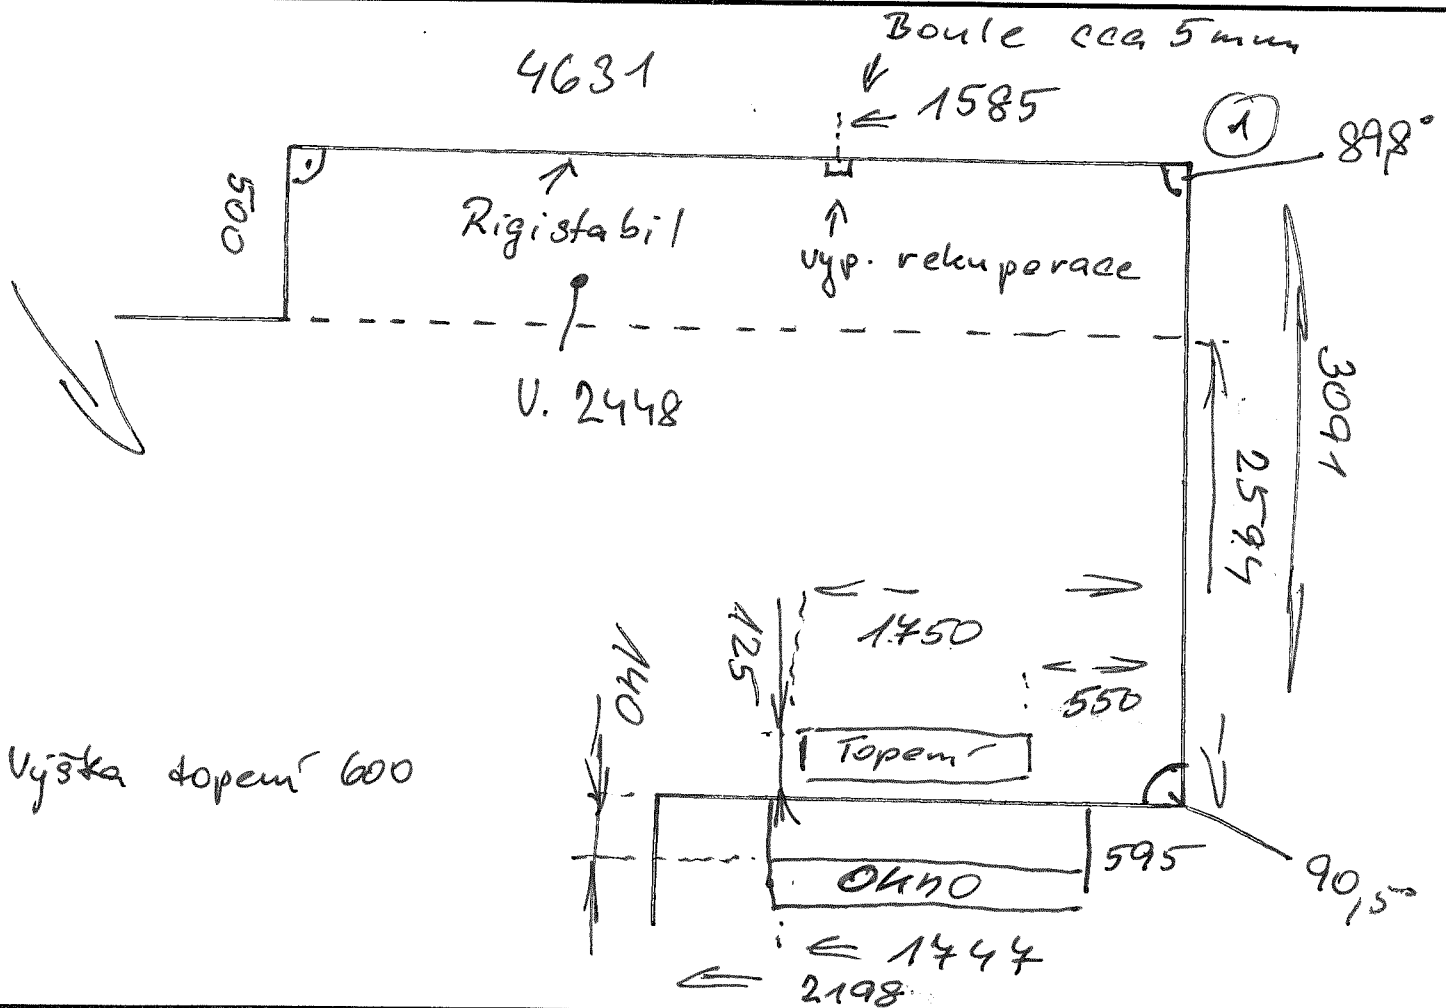 Boule cca 5mm
4631
1585
1
89,8°
500
Rigistabil
vyp. rekuperace
V. 2448
3091
2594
1750
125
140
550
Topení
Výška topení 600
595
OKNO
90,5°
1747
2198